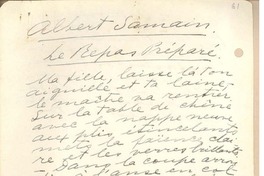 61
Albert Samain.
Le Repas Préparé.
Ma fille, laisse là ton
aiguille et ta laine,
le maître va rentrer
sur la table de chêne
avec la nappe neuve
aux plis étincelants
mets la faïence clai
re et les verres brillants
- Dans la coupe arron
à l'anse en col